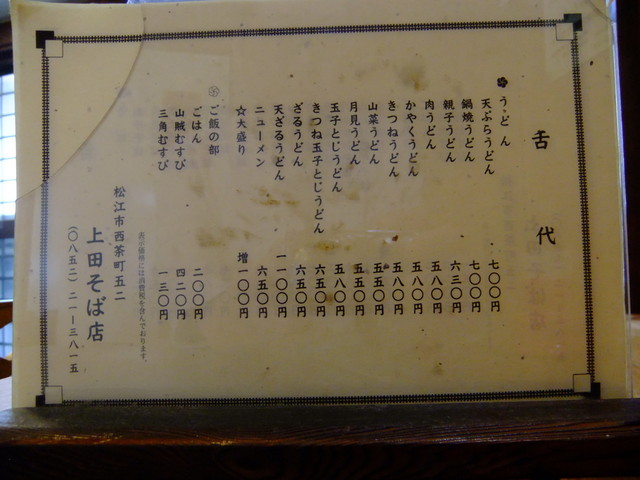 舌代
うどん
天ぷらうどん 七〇〇円
鍋焼うどん 七〇〇円
親子うどん 六三〇円
肉うどん 五八〇円
かやくうどん 五八〇円
きつねうどん 五八〇円
山菜うどん 五五〇円
月見うどん 五五〇円
玉子とじうどん 五八〇円
きつね玉子とじうどん 六五〇円
ざるうどん 六五〇円
天ざるうどん 一一〇〇円
ニューメン 六五〇円
☆大盛り 増一〇〇円
ご飯の部
ごはん 二〇〇円
山賊むすび 四二〇円
三角むすび 一三〇円
表示価格には消費税を含んでおります。
松江市西茶町五二
上田そば店
(〇八五二)二一ー三八一五